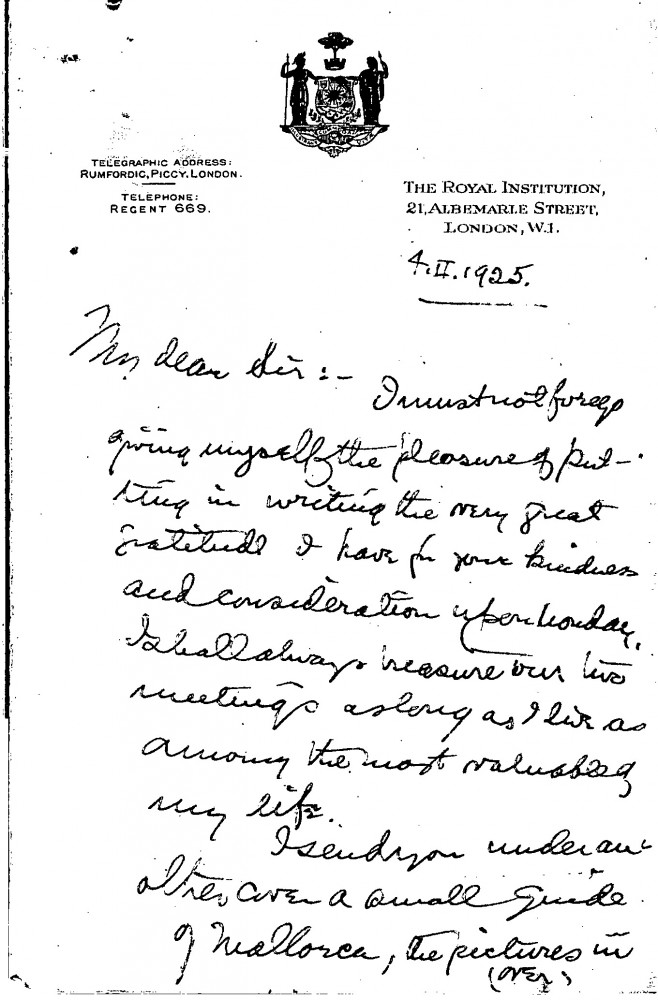 TELEGRAPHIC ADDRESS:
RUMFORDIC, PICCY, LONDON.
TELEPHONE:
REGENT 669.
THE ROYAL INSTITUTION,
21, ALBEMARLE STREET,
LONDON, W.1.
4.II.1925.
My dear Sir :-
I must not forego
giving myself the pleasure of put-
ting in writing the very great
gratitude I have for your kindness
and consideration upon Monday.
I shall always treasure our two
meetings as long as I live as
among the most valuable of
my life.
I send you under an-
other cover a small guide
of Mallorca, the pictures in
(OVER)